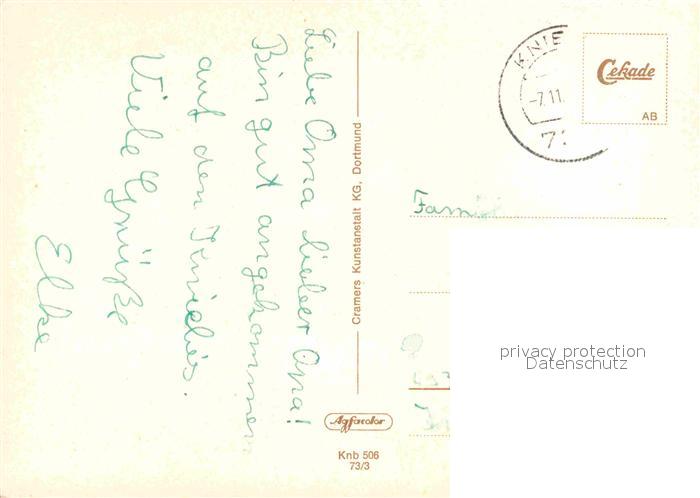 Liebe Oma lieber Opa!
Bin gut angekommen
auf den Kniebis.
Viele Grüße
Elke
Cramers Kunstanstalt KG, Dortmund
Agfacolor
Knb 506
73/3
KNIE
-7.11.
7
Cekade
AB
Famil
privacy protection
Datenschutz